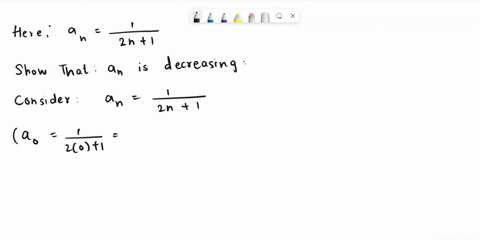 Here; a_n = 1/(2n+1)
Show That: a_n is decreasing:
Consider: a_n = 1/(2n + 1)
(a_0 = 1/(2(0)+1) =